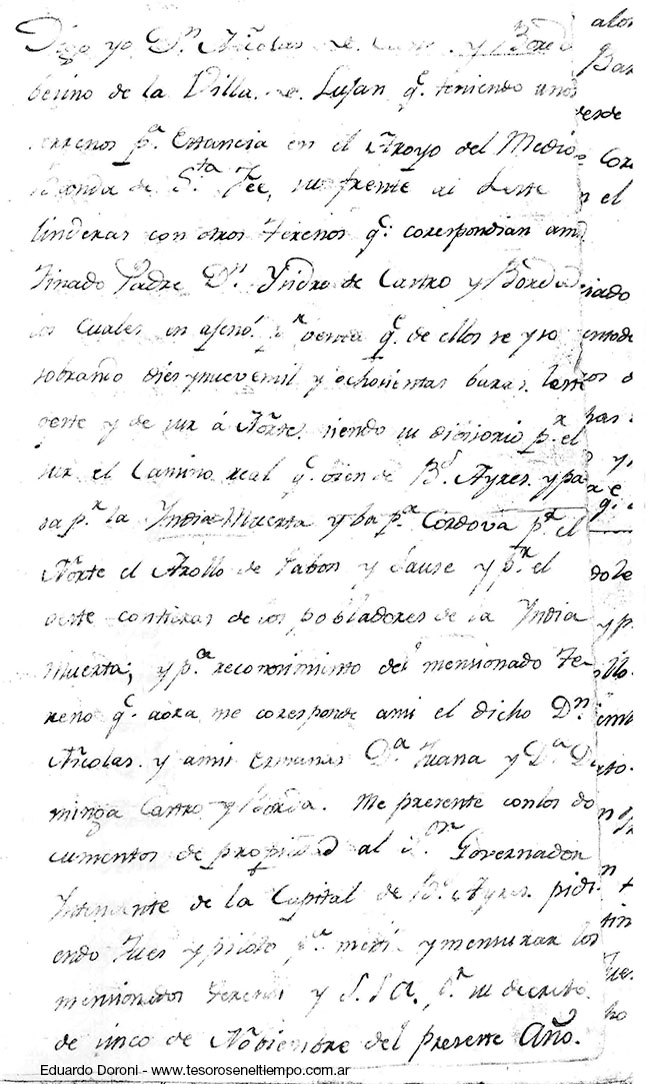 Digo yo Dn. Nicolas de Castro y Borda
besino de la Villa de Lujan qe. teniendo unos
terrenos pa. Estancia en el Aroyo del Medio
vanda de Sta. Fee, su frente al Leste
linderas con otros terenos qe. corespondian ami
finado Padre Dn. Ysidro de Castro y Borda
los cuales en ajenó pr. venta qe. de ellos se yso
sobrando dies ynuevemil y ochosientas baras. leste
oeste y de sur á Norte. siendo su dibisorio pr. el
sur el Camino real qe. bien de Bs. Ayres. ypa
sa pr. la India Muerta yba pa. Córdova pr. el
Norte el Arollo de Pabon y Sause y pr. el
oeste contieras de los pobladores de la Yndia
Muerta; y pa. reconosimiento del mensionado Te-
reno qe. aora me coresponde ami el dicho Dn.
Nicolas. y amis ermanas Da. Juana y Da. Do
minga Castro y Borda. Me presente conlos do
cumentos de propiedad al Sor. Governador
Yntendente de la Capital de Bs. Ayres. pidi-
endo Jues y piloto pa. medir ymensurar los
mensionados terenos y S. Sa. pr. su decreto
de sinco de Nobiembre del presente Año.
Eduardo Doroni - www.tesoroseneltiempo.com.ar